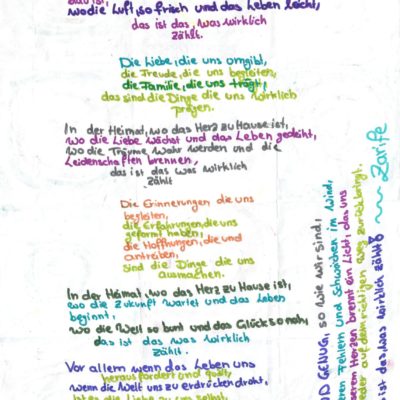 wo die Luft, so frisch und das Leben leicht,
das ist das, was wirklich
zählt.
Die Liebe, die uns umgibt,
die Freude, die uns begleiten,
die Familie, die uns trägt,
das sind die Dinge die uns wirklich
prägen.
In der Heimat, wo das Herz zu Hause ist,
wo die Liebe wächst und das Leben gedeiht,
wo die Träume wahr werden und die
Leidenschaften brennen,
das ist das was wirklich
zählt
Die Erinnerungen die uns
begleiten,
die Erfahrungen, die uns
geformt haben,
die Hoffnungen, die und
antreiben,
sind die Dinge die uns
ausmachen.
In der Heimat, wo das Herz zu Hause ist,
wo die Zukunft wartet und das Leben
beginnt,
wo die Welt so bunt und das Glück so nah,
das ist das was wirklich
zählt.
Vor allem wenn das Leben uns
herausfordert und
wenn die Welt uns zu erdrücken droht,
die Liebe zu uns selbst
GENUG, so wie wir sind,
Fehlern und Schwächen im Wind,
Herzen brennt ein Licht, das uns
auf dem richtigen Weg zurückbringt.
ist das was wirklich zählt
~ Zarife